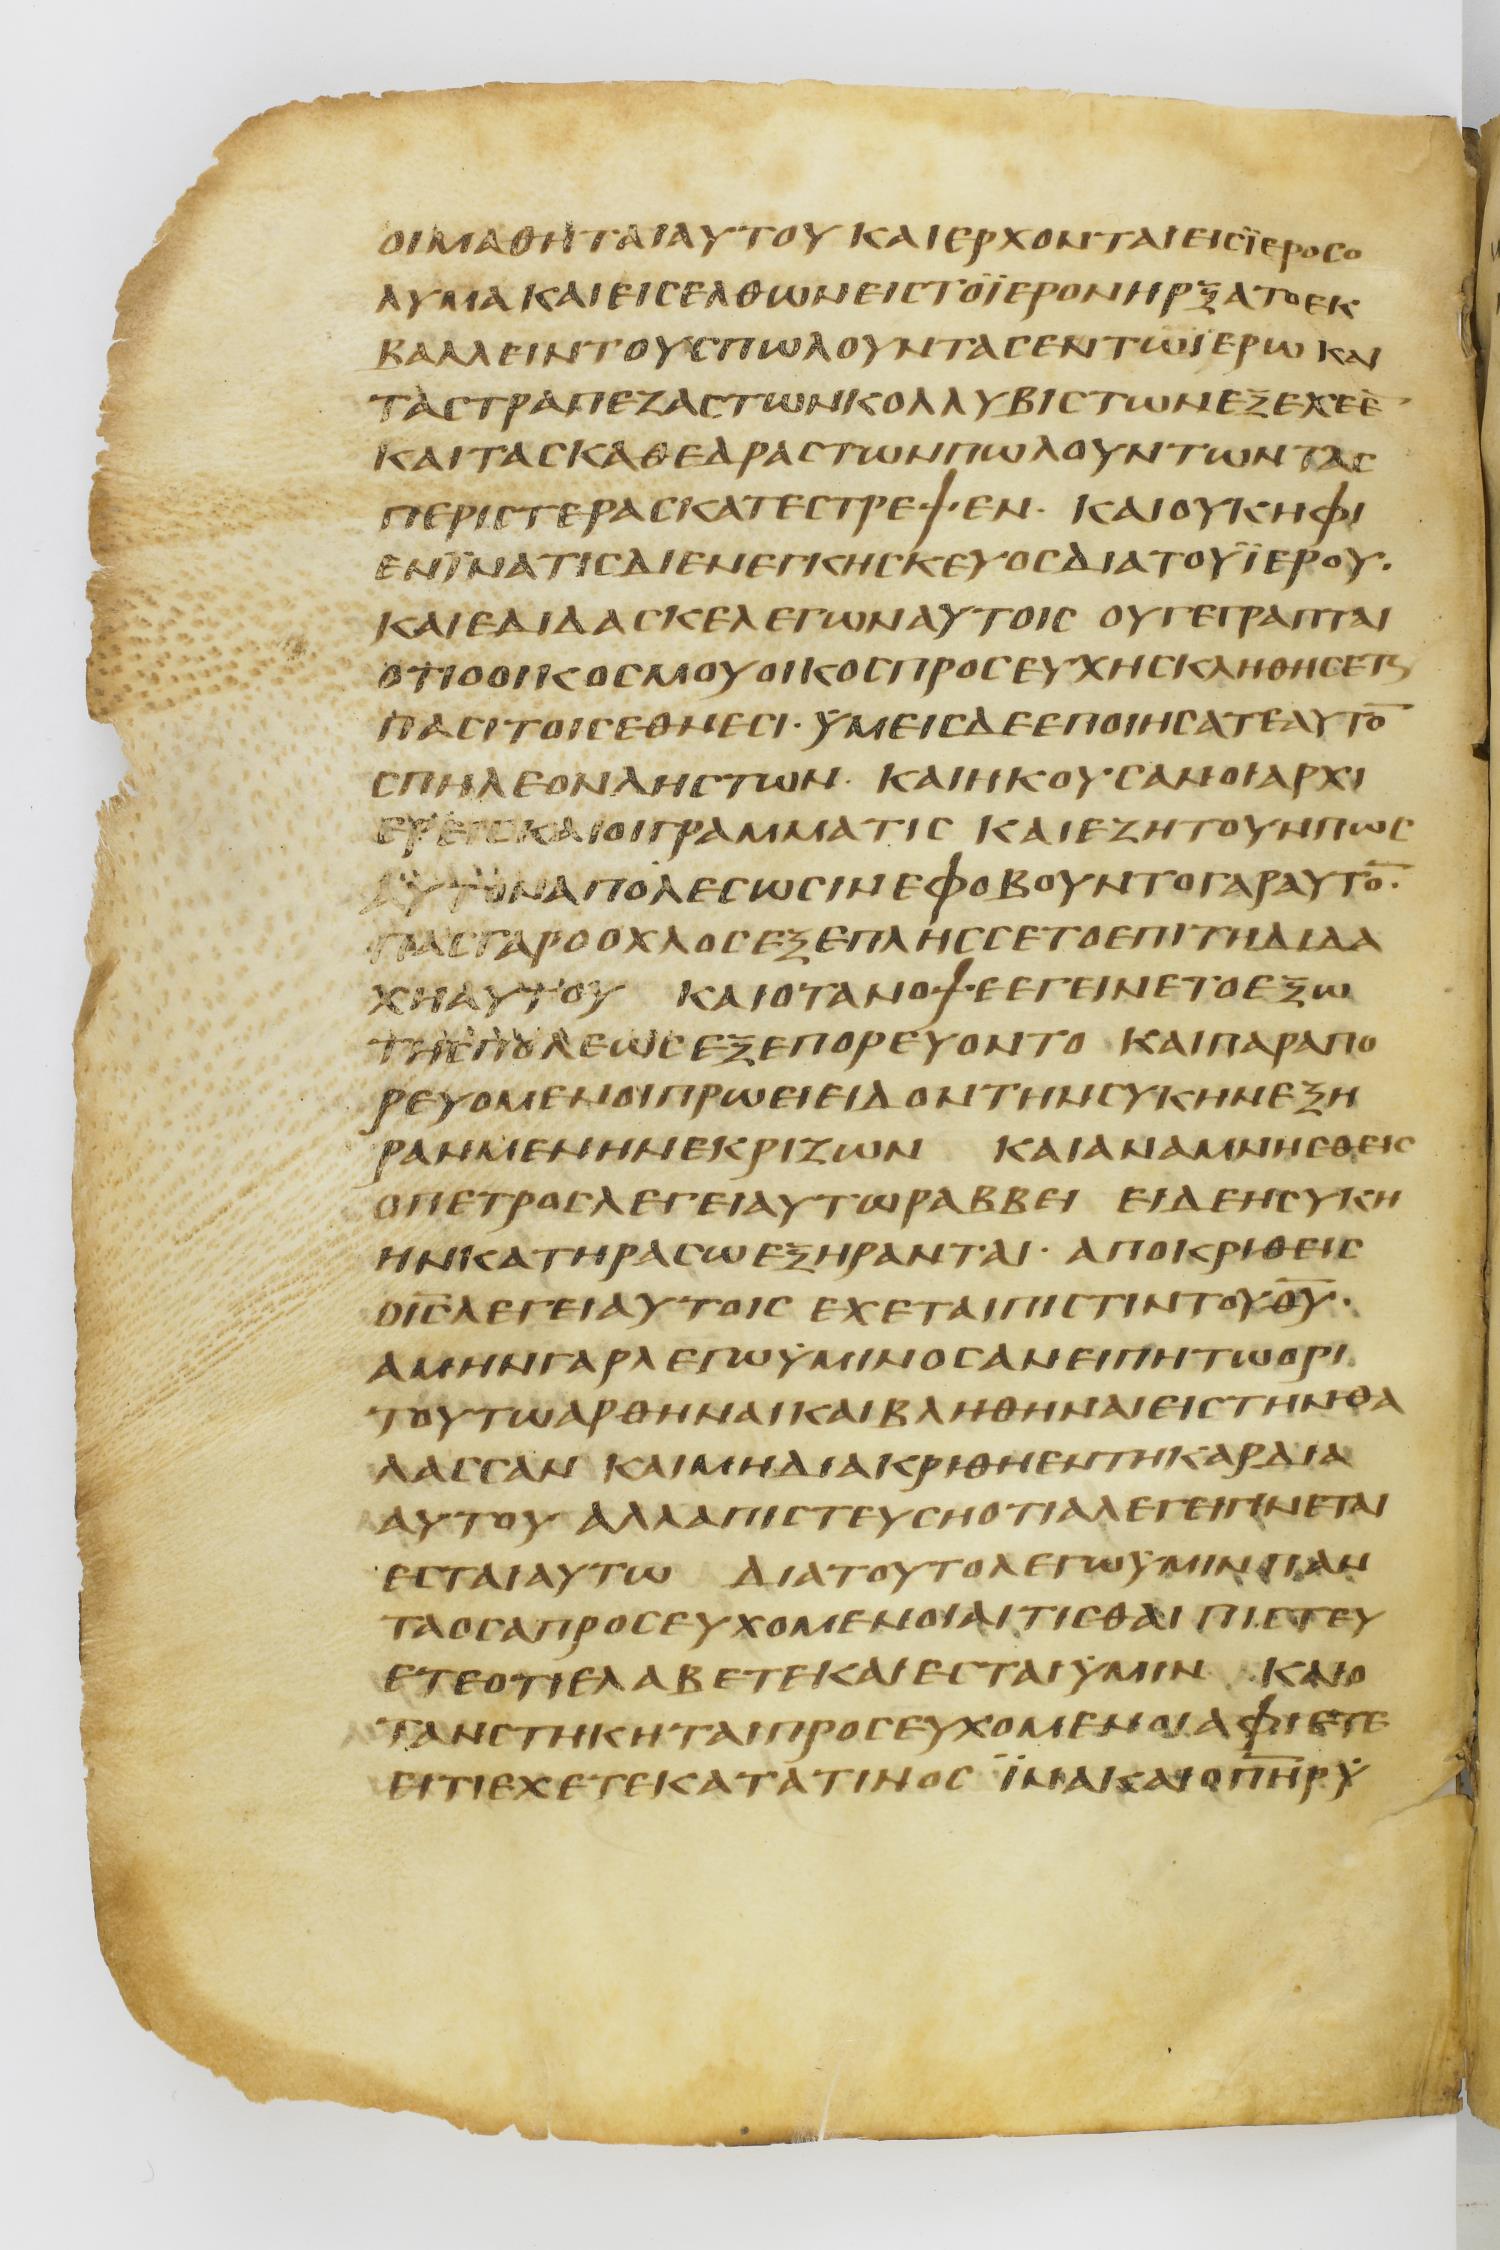 ΟΙΜΑΘΗΤΑΙΑΥΤΟΥ ΚΑΙΕΡΧΟΝΤΑΙΕΙСΪΕΡΟСΟ
ΛΥΜΑΚΑΙΕΙСΕΛΘΩΝΕΙСΤΟΪΕΡΟΝΗΡΞΑΤΟΕΚ
ΒΑΛΛΕΙΝΤΟΥСΠΩΛΟΥΝΤΑСΕΝΤΩΪΕΡΩΚΑΙ
ΤΑСΤΡΑΠΕΖΑСΤΩΝΚΟΛΛΥΒΙСΤΩΝΕΞΕΧΕΕ̅
ΚΑΙΤΑСΚΑΘΕΔΡΑСΤΩΝΠΩΛΟΥΝΤΩΝΤΑС
ΠΕΡΙСΤΕΡΑСΚΑΤΕСΤΡΕΨΕΝ· ΚΑΙΟΥΚΗΦΙ
ΕΝΪΝΑΤΙСΔΙΕΝΕΓΚΗСΚΕΥΟСΔΙΑΤΟΥΪΕΡΟΥ·
ΚΑΙΕΔΙΔΑСΚΕΛΕΓΩΝΑΥΤΟΙС ΟΥΓΕΓΡΑΠΤΑΙ
ΟΤΙΟΟΙΚΟСΜΟΥΟΙΚΟСΠΡΟСΕΥΧΗСΚΛΗΘΗСΕΤ̣
ΠΑСΙΤΟΙСΕΘΝΕСΙ· ΫΜΕΙСΔΕΕΠΟΙΗСΑΤΕΑΥΤΟ̅
СΠΗΛΕΟΝΛΗСΤΩΝ· ΚΑΙΗΚΟΥСΑΝΟΙΑΡΧΙ
ΕΡΕΙСΚΑΙΟΙΓΡΑΜΜΑΤΙС ΚΑΙΕΖΗΤΟΥΝΠΩС
ΑΥΤΟΝΑΠΟΛΕСΩСΙΝΕΦΟΒΟΥΝΤΟΓΑΡΑΥΤΟ̅·
ΠΑСΓΑΡΟΟΧΛΟСΕΞΕΠΛΗССΕΤΟΕΠΙΤΗΔΙΔΑ
ΧΗΑΥΤΟΥ ΚΑΙΟΤΑΝΟΨΕΕΓΕΙΝΕΤΟΕΞΩ
ΤΗСΠΟΛΕΩСΕΞΕΠΟΡΕΥΟΝΤΟ ΚΑΙΠΑΡΑΠΟ
ΡΕΥΟΜΕΝΟΙΠΡΩΕΙΕΙΔΟΝΤΗΝСΥΚΗΝΕΞΗ
ΡΑΜΜΕΝΗΝΕΚΡΙΖΩΝ ΚΑΙΑΝΑΜΝΗСΘΕΙС
ΟΠΕΤΡΟСΛΕΓΕΙΑΥΤΩΡΑΒΒΕΙ ΕΙΔΕΗСΥΚΗ
ΗΝΚΑΤΗΡΑСΩΕΞΗΡΑΝΤΑΙ· ΑΠΟΚΡΙΘΕΙС
ΟΙ̅С̅ΛΕΓΕΙΑΥΤΟΙС ΕΧΕΤΑΙΠΙСΤΙΝΤΟΥΘ̅Υ̅·
ΑΜΗΝΓΑΡΛΕΓΩΫΜΙΝΟСΑΝΕΙΠΗΤΩΟΡΙ
ΤΟΥΤΩΑΡΘΗΝΑΙΚΑΙΒΛΗΘΗΝΑΙΕΙСΤΗΝΘΑ
ΛΑССΑΝ ΚΑΙΜΗΔΙΑΚΡΙΘΗΕΝΤΗΚΑΡΔΙΑ
ΑΥΤΟΥ ΑΛΛΑΠΙСΤΕΥСΗΟΤΙΑΛΕΓΕΙΓΙΝΕΤΑΙ
ΕСΤΑΙΑΥΤΩ ΔΙΑΤΟΥΤΟΛΕΓΩΫΜΙΝΠΑΝ
ΤΑΟСΑΠΡΟСΕΥΧΟΜΕΝΟΙΑΙΤΙСΘΑΙΠΙСΤΕΥ
ΕΤΕΟΤΙΕΛΑΒΕΤΕΚΑΙΕСΤΑΙΫΜΙΝ ΚΑΙΟ
ΤΑΝСΤΗΚΗΤΑΙΠΡΟСΕΥΧΟΜΕΝΟΙΑΦΙΕΤΕ
ΕΙΤΙΕΧΕΤΕΚΑΤΑΤΙΝΟС ΪΝΑΚΑΙΟΠ̅Η̅Ρ̅Ϋ